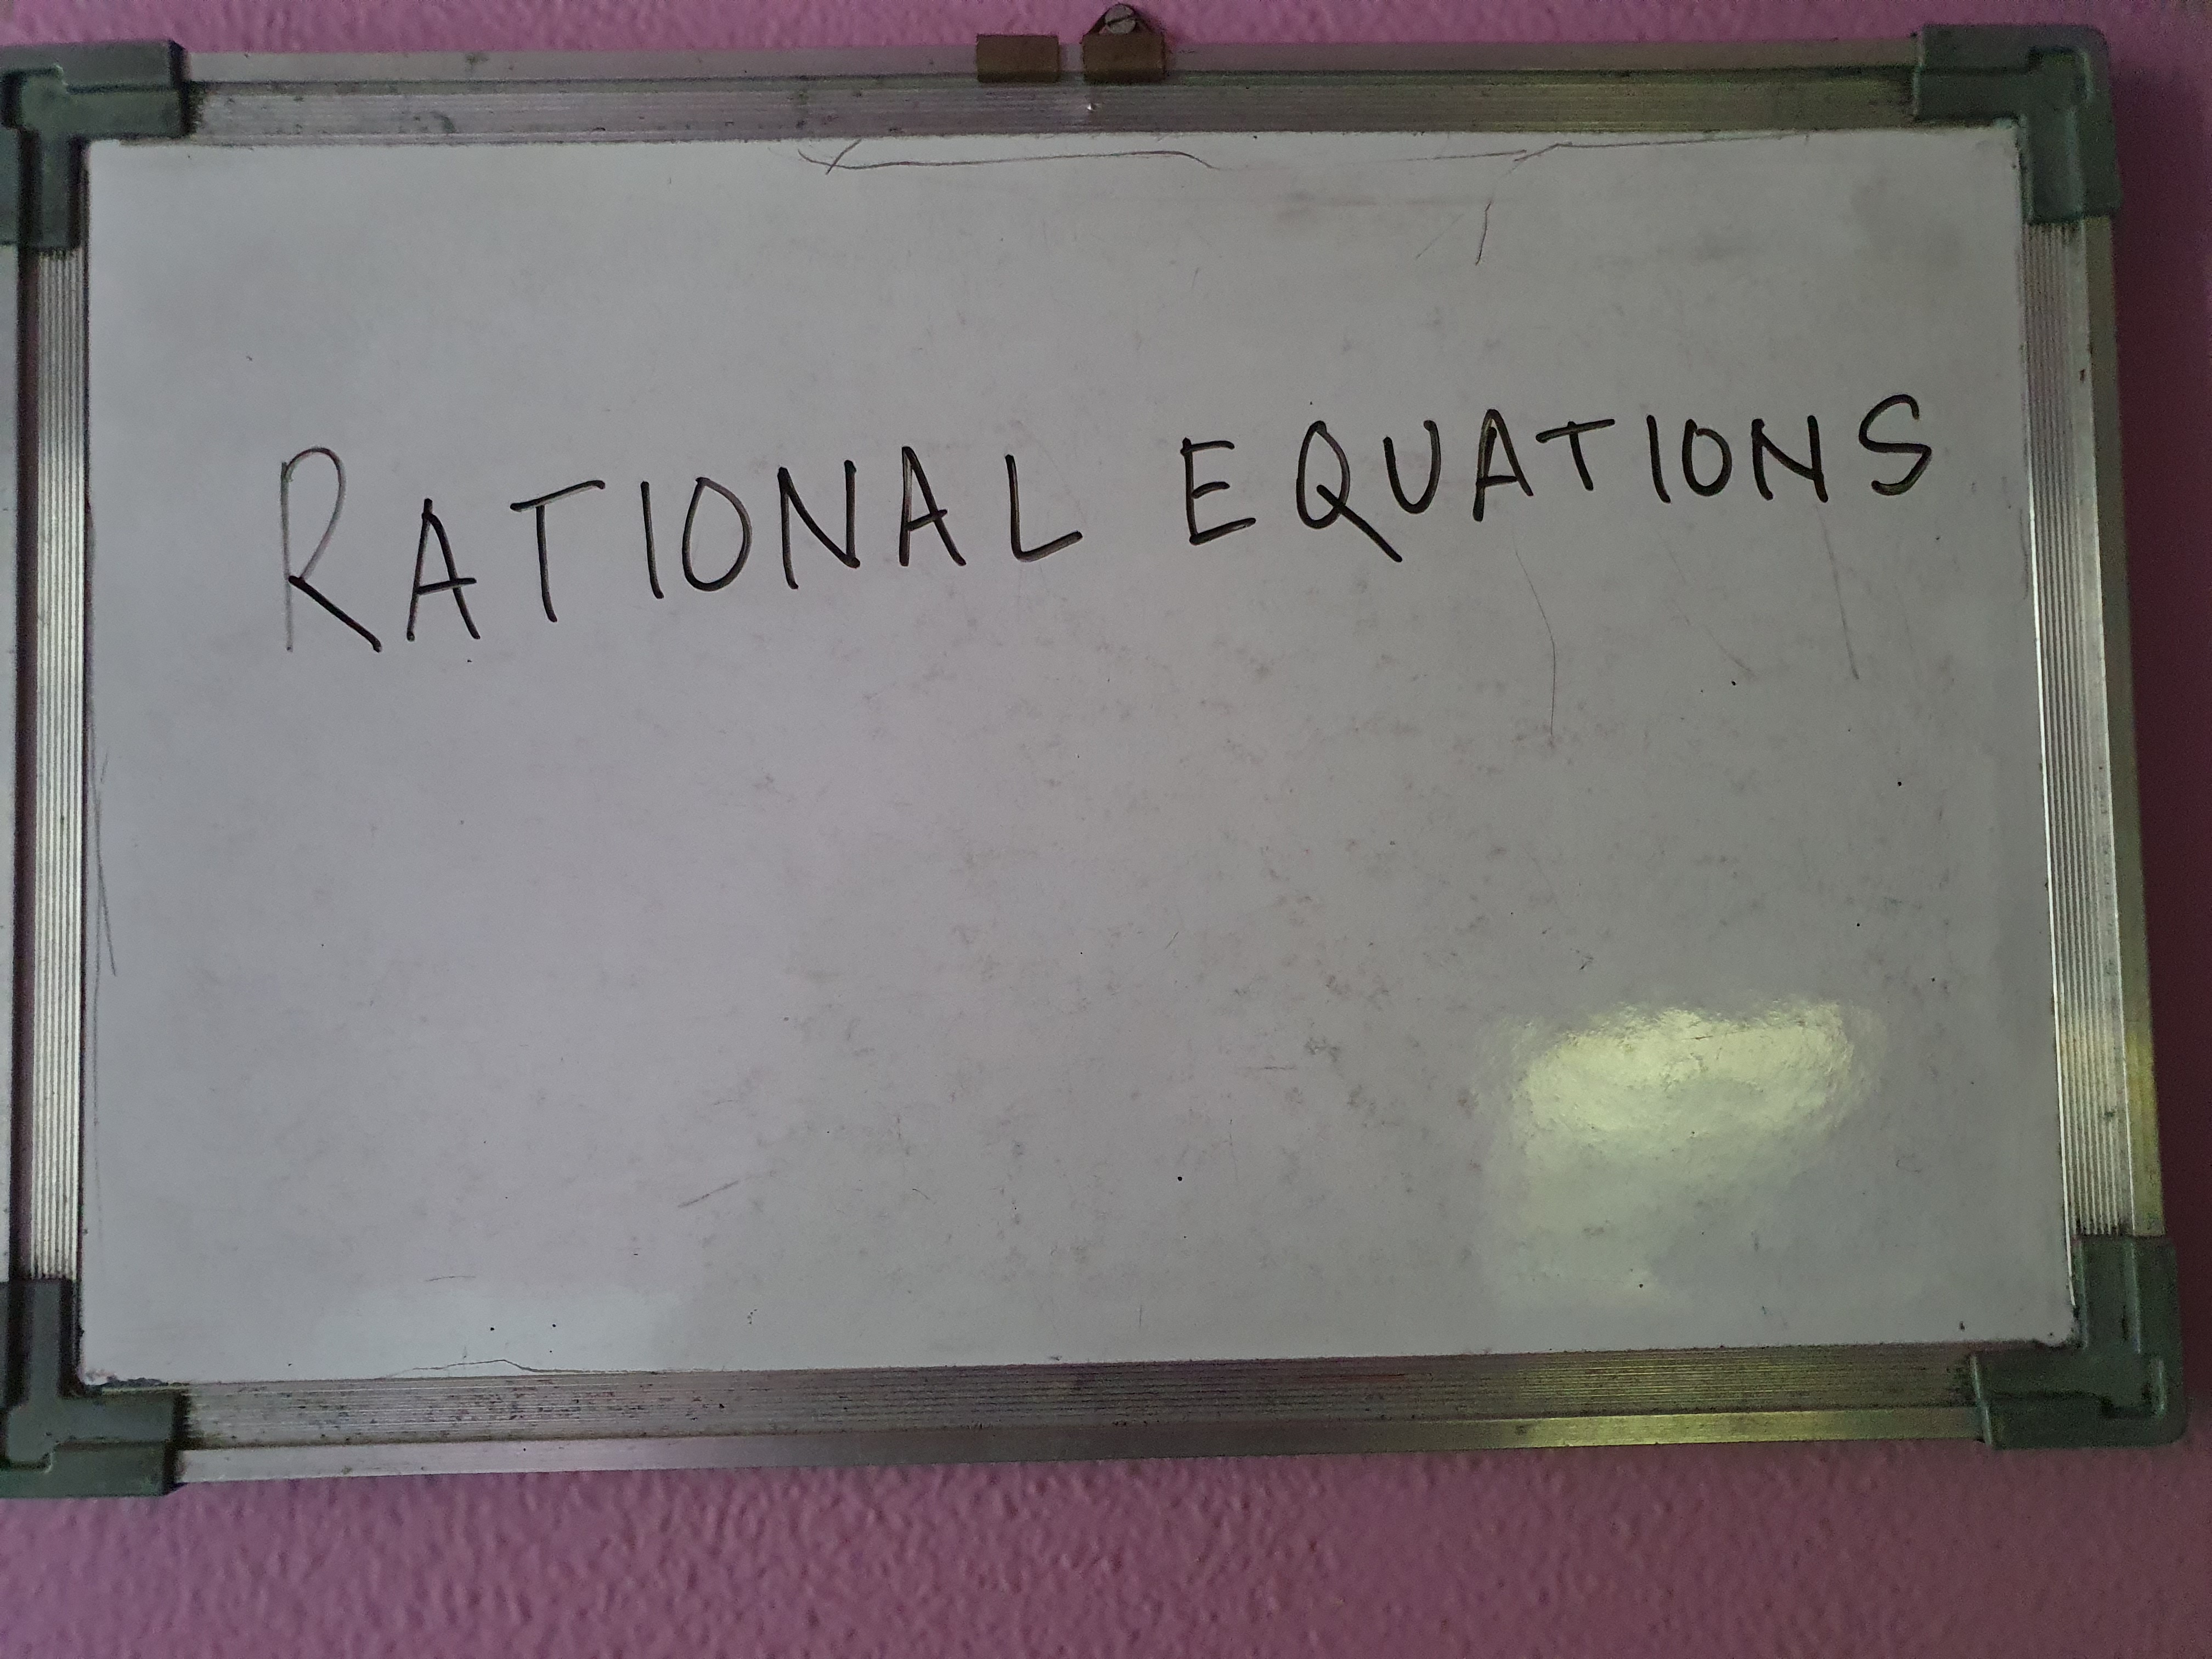 RATIONAL EQUATIONS